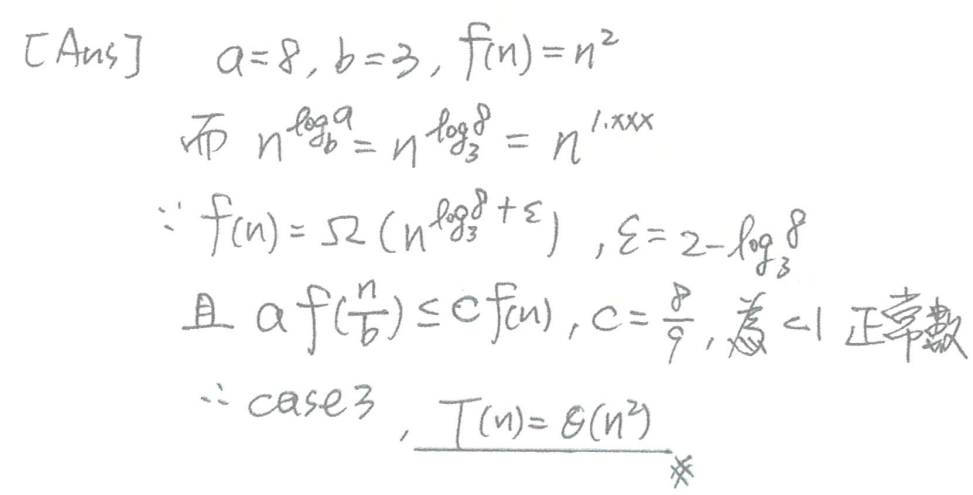 [Ans] a=8, b=3, f(n)=n²
而 n^{log_b a} = n^{log_3 8} = n^{1.xxx}
∵ f(n)=Ω(n^{log_3 8 + ε}), ε=2-log_3 8
且 a f(n/b) ≤ c f(n), c=8/9, 為<1 正常數
∴ case3, T(n)=Θ(n²) ※